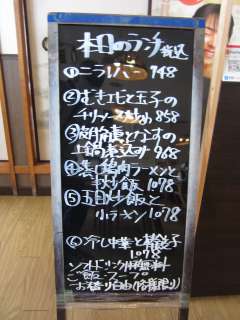 本日のランチ 税込
①ニラレバー 748
②むきエビと玉子の
チリソース炒め 858
③ なすの
土鍋煮込み 968
④ 鶏肉ラーメンと
半炒飯 1078
⑤五目炒飯と
小ラーメン 1078
⑥冷し中華と餃子
1078
ソフトドリンク1杯無料
ご飯・スープ
お替り自由